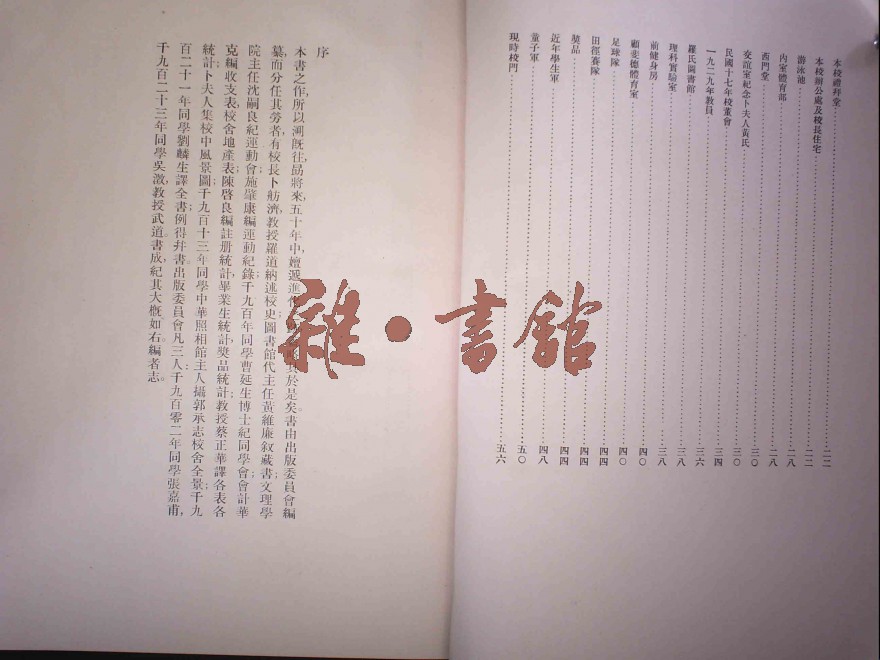 本校禮拜堂……二二
本校辦公處及校長住宅……二二
游泳池……二八
內室體育部……二八
西門堂……二八
交誼室紀念卜夫人黃氏……三〇
民國十七年校董會……三〇
一九二九年教員……三四
羅氏圖書館……三六
理科實驗室……三八
前健身房……三八
顧斐德體育室……四〇
足球隊……四〇
田徑賽隊……四四
獎品……四四
近年學生軍……四四
童子軍……四八
現時校門……五〇
五六
序
本書之作,所以溯既往,勗將來,五十年中,嬗遞進於是矣。書由出版委員會編
纂,而分任其勞者,有校長卜舫濟,教授羅道納述校史;圖書館代主任黃維廉敘藏書;文理學
院主任沈嗣良紀運動會;施肇康編運動紀錄;千九百年同學曹延生博士紀同學會;會計華
克編收支表,校舍地產表;陳啓良編註册統計,畢業生統計,獎品統計;教授蔡正華譯各表各
統計;卜夫人集校中風景圖;千九百十三年同學中華照相館主人攝郭承志校舍全景;千九
百二十一年同學劉麟生譯全書;例得弁書。出版委員會凡三人:千九百零二年同學張嘉甫,
千九百二十三年同學吳澂,教授武道。書成,紀其大概如右。編者志。
雜·書館